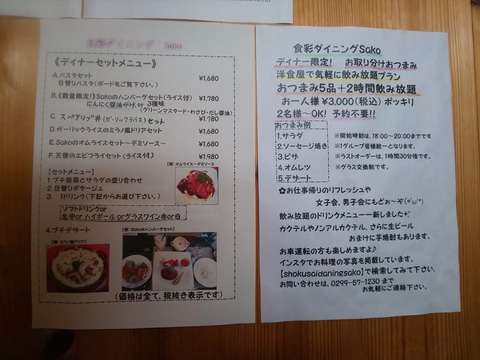 食彩ダイニング Sako
《ディナーセットメニュー》
A.パスタセット ¥1,680
日替りパスタ(ボードをご覧下さい。)
B.《数量限定!》Sakoのハンバーグセット(ライス付) ¥1,780
にんにく醤油がけor 3種味
(グリーンマスタード・わさび・だし醤油)
セット ¥1,680
D.ガーリックライスのミラノ風ドリアセット ¥1,680
E.Sakoのオムライスセット~デミソース~ ¥1,680
F.天使のエビフライセット(ライス付) ¥1,980
【セットメニュー】
1.プチ前菜とサラダの盛り合わせ
2.日替りポタージュ
3.ドリンク(下記からお選び下さい。)
ソフトドリンクor
生中orハイボールorグラスワイン赤or白
4.プチデザート
(価格は全て、税抜き表示です)
食彩ダイニングSako
ディナー限定! お取り分けおつまみ
洋食屋で気軽に飲み放題プラン
おつまみ5品+2時間飲み放題
お一人様¥3,000(税込)ポッキリ
2名様~OK! 予約不要!!
おつまみ例
1.サラダ
2.ソーセージ焼き
3.ピザ
4.オムレツ
5.デザート
※開始時刻は、18:00~20:00までです
※1グループ皆様統一となります。
※ラストオーダーは、1時間30分後です。
✿お仕事帰りのリフレッシュや
女子会、男子会にもどぉ~ぞ
飲み放題のドリンクメニュー新しました
カクテルやノンアルカクテル、さらに生ビール
おまけに芋焼酎もあります。
お車運転の方も楽しめますよ♪
インスタでお料理の写真を掲載しています。
【shokusaidaningsako】で検索してみて下さい。
お問い合わせは、0299-57-1230 まで
お気軽にご連絡下さい。